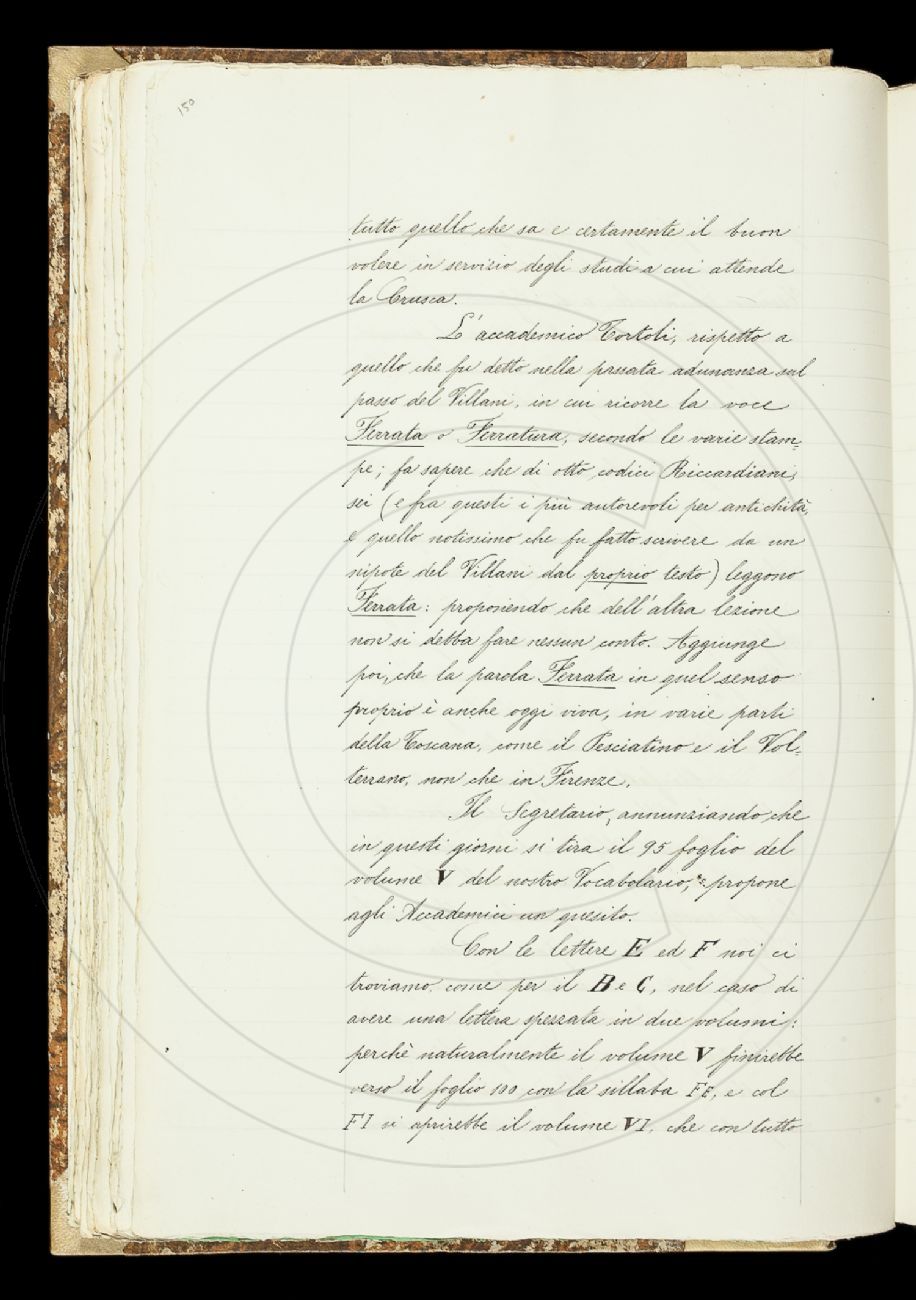 150
tutto quello che sa e certamente il buon
volere in servizio degli studi a cui attende
la Crusca.
L'accademico Tortoli, rispetto a
quello che fu detto nella passata adunanza sul
passo del Villani, in cui ricorre la voce
Ferrata o Ferratura, secondo le varie stam-
pe; fa sapere che di otto codici Riccardiani,
sei (e fra questi i più autorevoli per antichità,
e quello notissimo che fu fatto scrivere da un
nipote del Villani dal proprio testo) leggono
Ferrata: proponendo che dell'altra lezione
non si debba fare nessun conto. Aggiunge
poi, che la parola Ferrata in quel senso
proprio è anche oggi viva, in varie parti
della Toscana, come il Pesciatino e il Vol-
terrano, non che in Firenze.
Il Segretario, annunziando che
in questi giorni si tira il 95 foglio del
volume V del nostro Vocabolario, propone
agli Accademici un quesito.
Con le lettere E ed F noi ci
troviamo, come per il B e C, nel caso di
avere una lettera spezzata in due volumi:
perchè naturalmente il volume V finirebbe
verso il foglio 100 con la sillaba FE, e col
FI si aprirebbe il volume VI, che con tutto